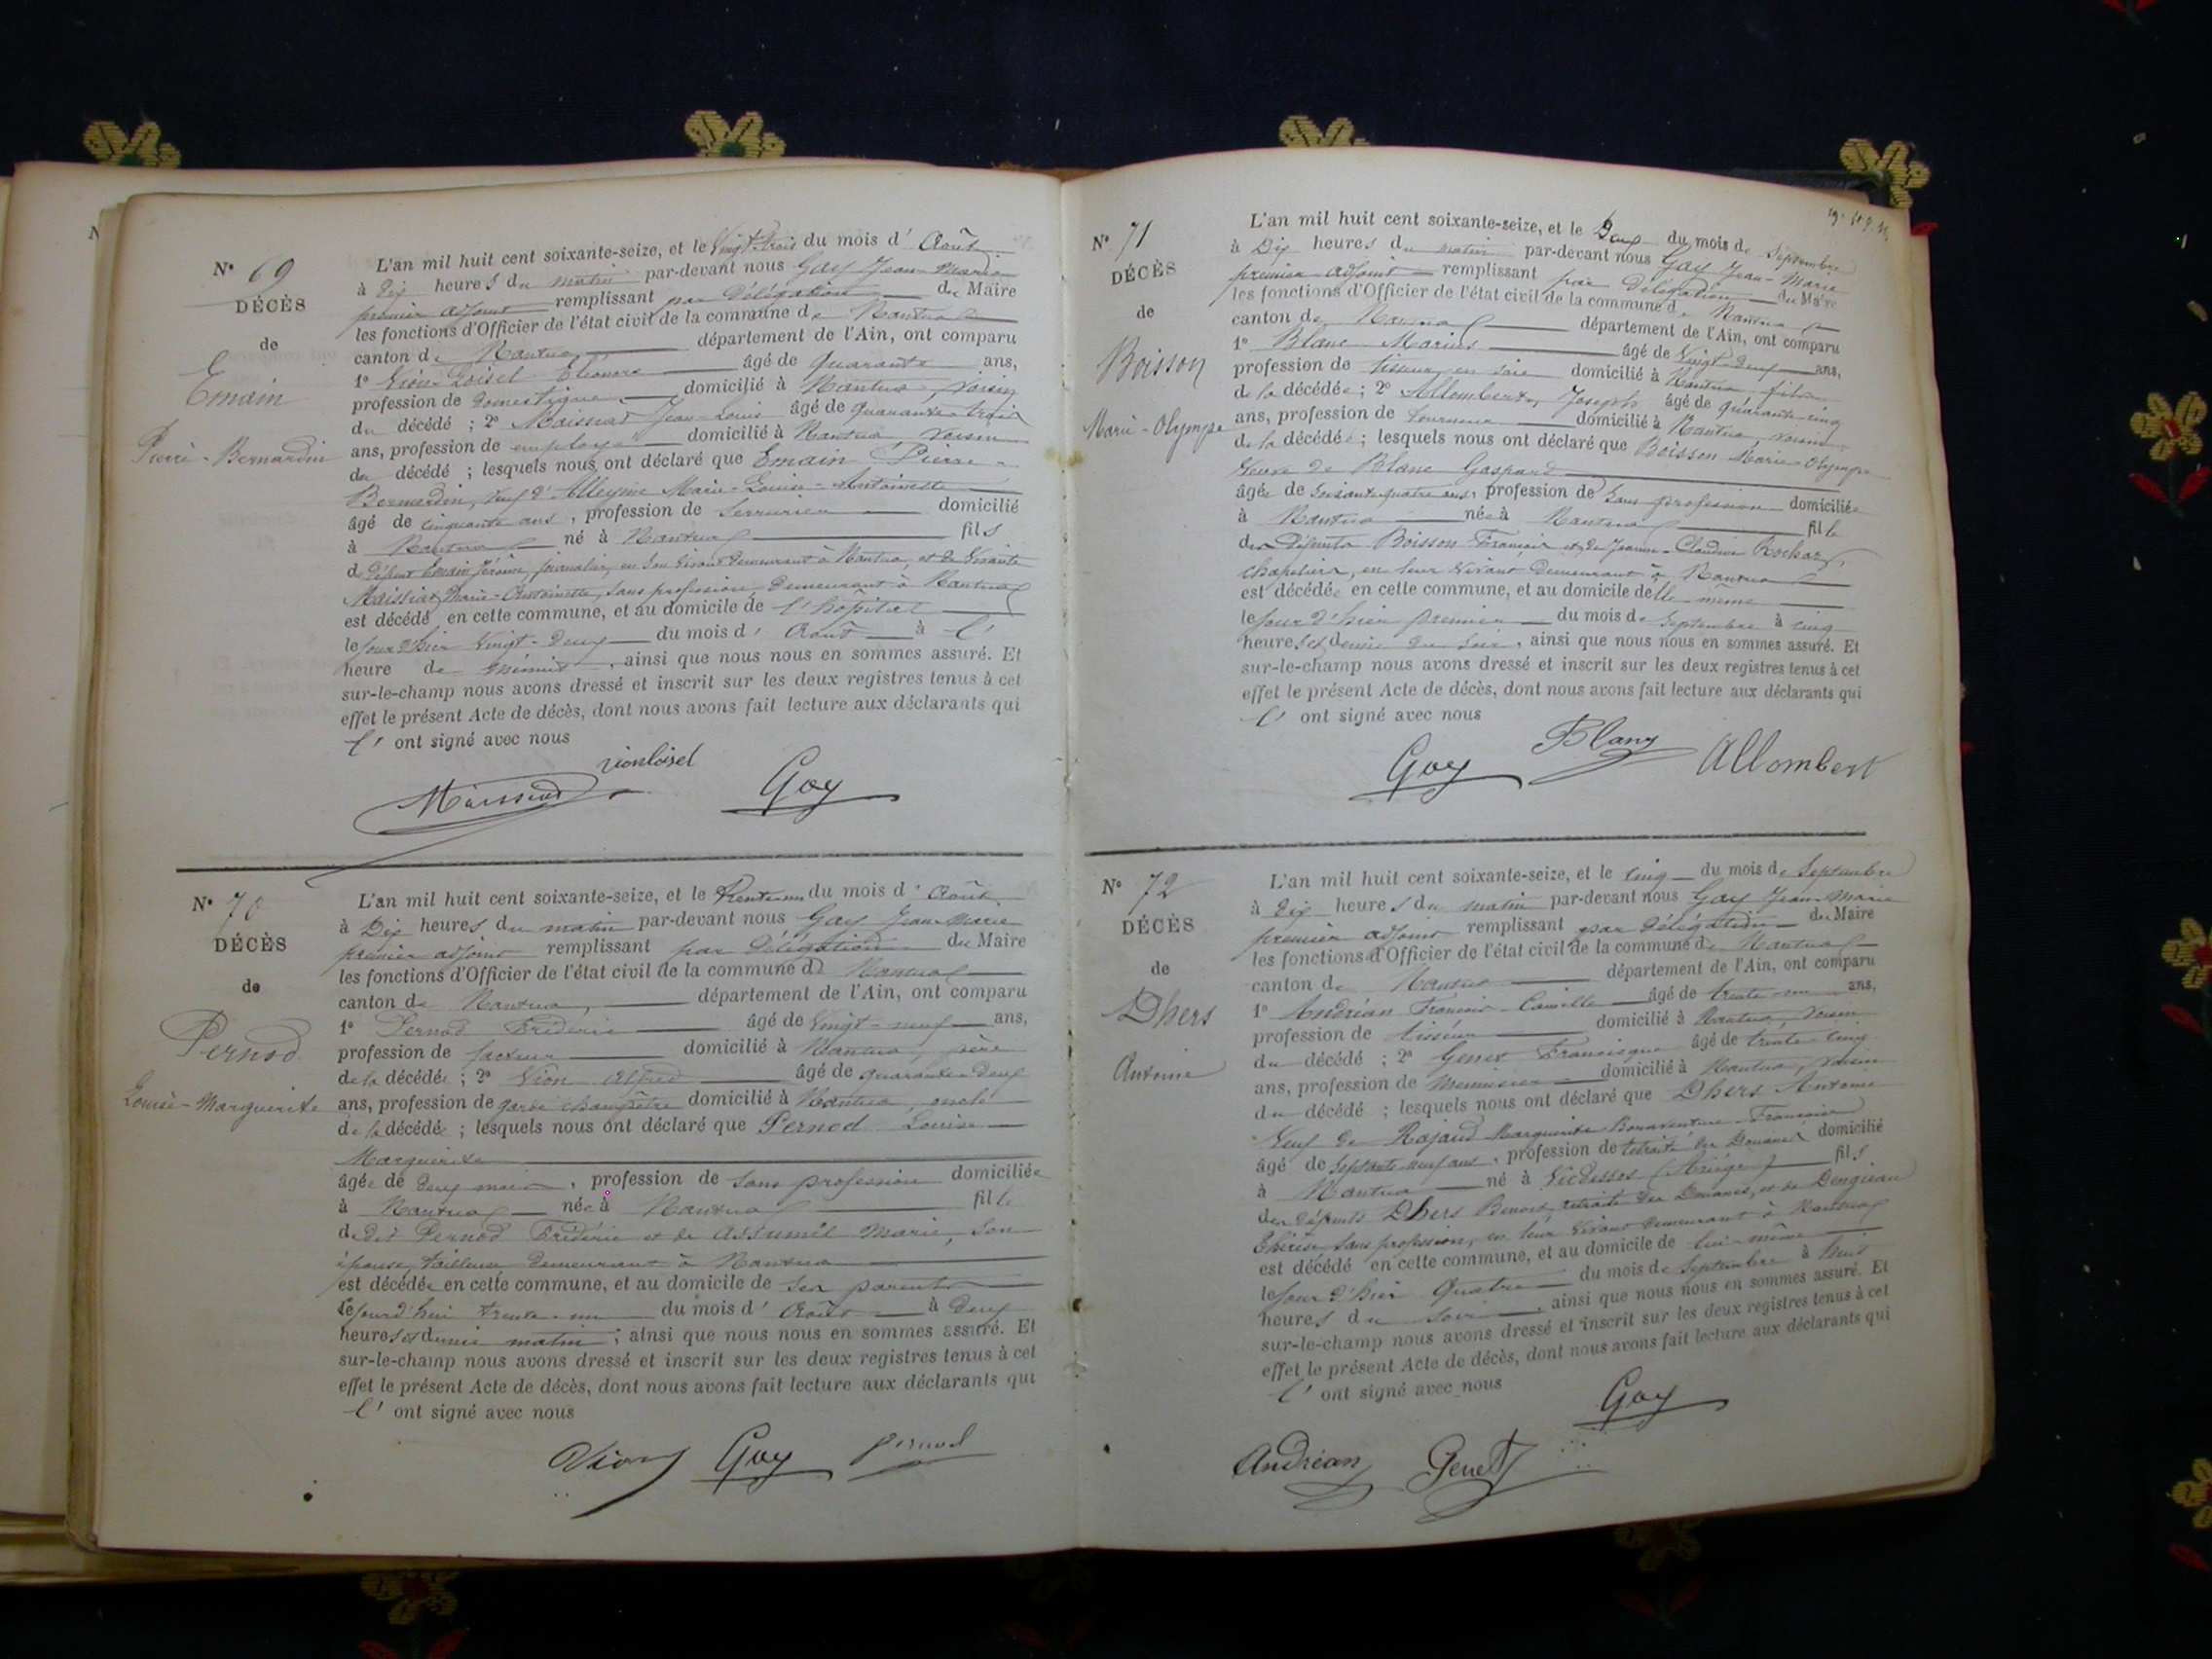 N° 69
DÉCÈS
de
Emain
Pierre-Bernardin
L'an mil huit cent soixante-seize, et le Vingt-trois du mois d'Août
à Dix heures du matin par-devant nous Gay Jean-Marie
premier adjoint remplissant par Délégation du Maire
les fonctions d'Officier de l'état civil de la commune de Nantua
canton de Nantua département de l'Ain, ont comparu
1° Vion-Loisel Eléonore âgé de quarante ans,
profession de Domestique domicilié à Nantua, voisin
du décédé ; 2° Maissiat Jean-Louis âgé de quarante-trois
ans, profession de employé domicilié à Nantua voisin
du décédé ; lesquels nous ont déclaré que Emain Pierre-
Bernardin, veuf d'Alleyme Marie-Louise-Antoinette
âgé de cinquante ans, profession de Serrurier domicilié
à Nantua né à Nantua fils
de défunt Emain Jérôme, journalier, en son vivant demeurant à Nantua, et de vivante
Maissiat Marie-Antoinette, sans profession, demeurant à Nantua
est décédé en cette commune, et au domicile de l'hôpital
le jour d'hier Vingt-Deux du mois d'Août à l'
heure de minuit, ainsi que nous nous en sommes assuré. Et
sur-le-champ nous avons dressé et inscrit sur les deux registres tenus à cet
effet le présent Acte de décès, dont nous avons fait lecture aux déclarants qui
l' ont signé avec nous
vionloisel
Maissiat Gay
N° 70
DÉCÈS
de
Pernod
Louise-Marguerite
L'an mil huit cent soixante-seize, et le Trente-un du mois d'Août
à Dix heures du matin par-devant nous Gay Jean-Marie
premier adjoint remplissant par Délégation du Maire
les fonctions d'Officier de l'état civil de la commune de Nantua
canton de Nantua, département de l'Ain, ont comparu
1° Pernod Fréderic âgé de Vingt-neuf ans,
profession de facteur domicilié à Nantua, père
de la décédée ; 2° Vion Alfred âgé de quarante-deux
ans, profession de garde champêtre domicilié à Nantua, oncle
de la décédée ; lesquels nous ont déclaré que Pernod Louise
Marguerite
âgée de deux mois, profession de sans profession domiciliée
à Nantua née à Nantua fille
de dit Pernod Fréderic et de Assumél Marie, son
épouse, tailleuse demeurant à Nantua
est décédée en cette commune, et au domicile de ses parents
le jourd'hui trente-un du mois d'Août à deux
heures et demie matin ; ainsi que nous nous en sommes assuré. Et
sur-le-champ nous avons dressé et inscrit sur les deux registres tenus à cet
effet le présent Acte de décès, dont nous avons fait lecture aux déclarants qui
l' ont signé avec nous
Vion Gay Pernod
N° 71
DÉCÈS
de
Boisson
Marie-Olympe
L'an mil huit cent soixante-seize, et le Deux du mois de Septembre
à Dix heures du matin par-devant nous Gay Jean-Marie
premier adjoint remplissant par Délégation du Maire
les fonctions d'Officier de l'état civil de la commune de Nantua
canton de Nantua département de l'Ain, ont comparu
1° Blanc Marius âgé de Vingt-deux ans,
profession de tisseur en soie domicilié à Nantua fils
de la décédée ; 2° Allombert, Joseph âgé de quarante-cinq
ans, profession de tourneur domicilié à Nantua, voisin
de la décédée ; lesquels nous ont déclaré que Boisson Marie-Olympe
Veuve de Blanc Gaspard
âgée de soixante-quatre ans, profession de sans profession domiciliée
à Nantua née à Nantua fille
des défunts Boisson François et de Jeanne-Claudine Rochaz,
chapeliers, en leur vivant demeurant à Nantua
est décédée en cette commune, et au domicile delle même
le jour d'hier premier du mois de Septembre à cinq
heures et demie du soir, ainsi que nous nous en sommes assuré. Et
sur-le-champ nous avons dressé et inscrit sur les deux registres tenus à cet
effet le présent Acte de décès, dont nous avons fait lecture aux déclarants qui
l' ont signé avec nous
Gay Blanc Allombert
N° 72
DÉCÈS
de
Dhers
Antoine
L'an mil huit cent soixante-seize, et le cinq du mois de Septembre
à Dix heures du matin par-devant nous Gay Jean-Marie
premier adjoint remplissant par Délégation du Maire
les fonctions d'Officier de l'état civil de la commune de Nantua
canton de Nantua département de l'Ain, ont comparu
1° Andrian François-Camille âgé de trente-un ans,
profession de tisseur domicilié à Nantua, voisin
du décédé ; 2° Genet Francisque âgé de trente-cinq
ans, profession de Menuisier domicilié à Nantua, voisin
du décédé ; lesquels nous ont déclaré que Dhers Antoine
Veuf de Rajaud Marguerite Bonaventure Françoise
âgé de septante-neuf ans, profession de retraité des Douanes domicilié
à Nantua né à Vicdessos (Ariège) fils
des défunts Dhers Benoit, retraité des Douanes, et de Dengieau
Thérèse, sans profession, en leur vivant demeurant à Nantua
est décédé en cette commune, et au domicile de lui-même
le jour d'hier Quatre du mois de Septembre à huit
heures du soir, ainsi que nous nous en sommes assuré. Et
sur-le-champ nous avons dressé et inscrit sur les deux registres tenus à cet
effet le présent Acte de décès, dont nous avons fait lecture aux déclarants qui
l' ont signé avec nous
Gay
Andrian Genet